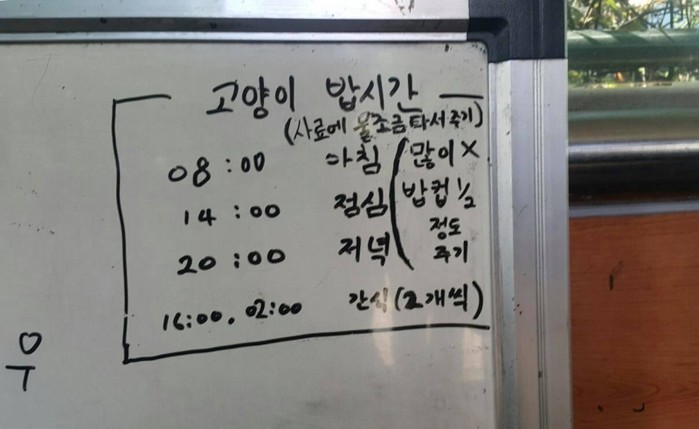 고양이 밥시간
(사료에 물조금타서주기)
08:00 아침 (많이 X
14:00 점심 밥컵 1/2
정도
20:00 저녁 주기
16:00, 02:00 간식 (2개씩)
우